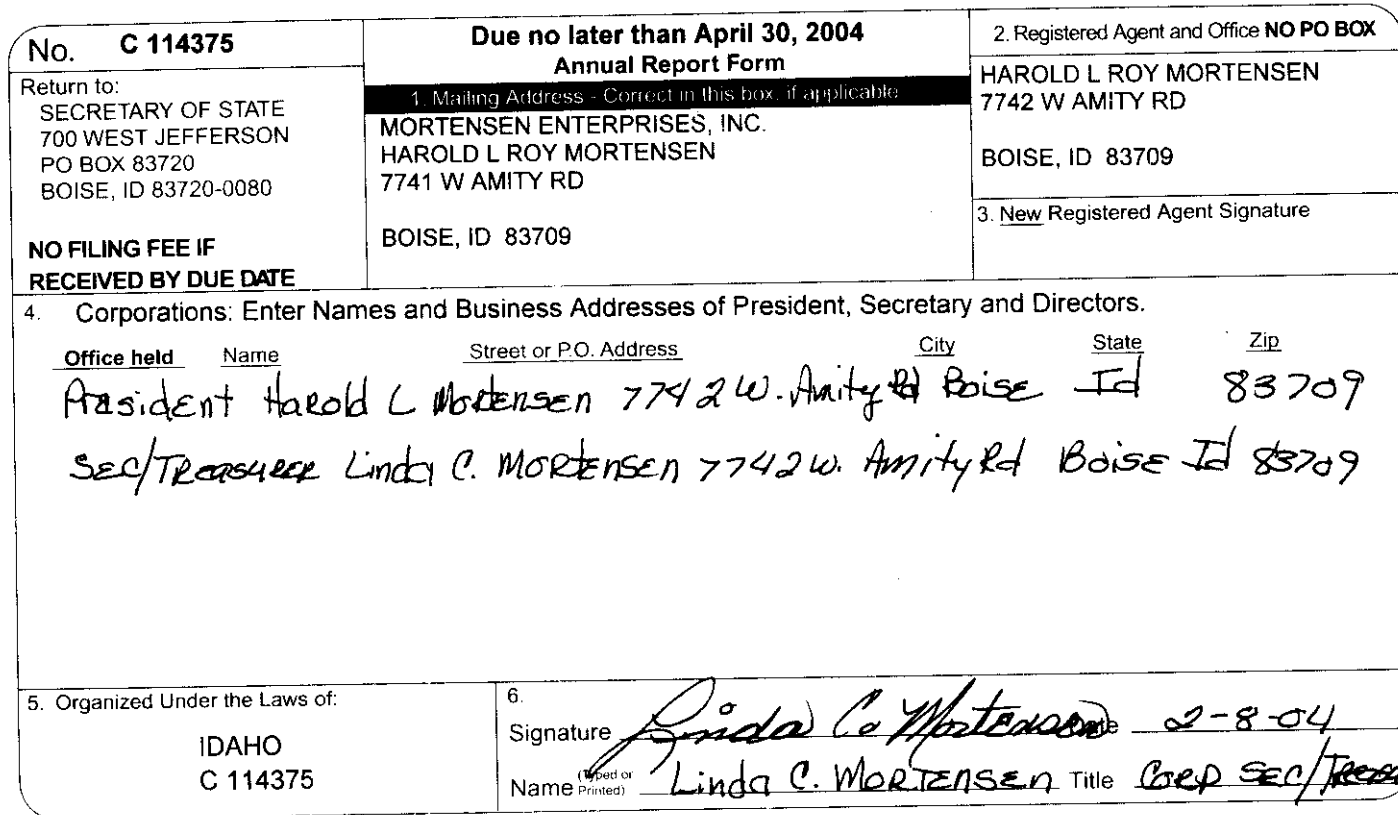 No. C 114375
Return to:
SECRETARY OF STATE
700 WEST JEFFERSON
PO BOX 83720
BOISE, ID 83720-0080
NO FILING FEE IF
RECEIVED BY DUE DATE
Due no later than April 30, 2004
Annual Report Form
1. Mailing Address - Correct in this box, if applicable
MORTENSEN ENTERPRISES, INC.
HAROLD L ROY MORTENSEN
7741 W AMITY RD
BOISE, ID 83709
2. Registered Agent and Office NO PO BOX
HAROLD L ROY MORTENSEN
7742 W AMITY RD
BOISE, ID 83709
3. New Registered Agent Signature
4. Corporations: Enter Names and Business Addresses of President, Secretary and Directors.
Office held Name Street or P.O. Address City State Zip
President Harold L Mortensen 7742 W. Amity Rd Boise Id 83709
Sec/Treasurer Linda C. Mortensen 7742 W. Amity Rd Boise Id 83709
5. Organized Under the Laws of:
IDAHO
C 114375
6.
Signature Linda C. Mortensen 2-8-04
Name (Typed or Printed) Linda C. Mortensen Title Corp Sec/Treas